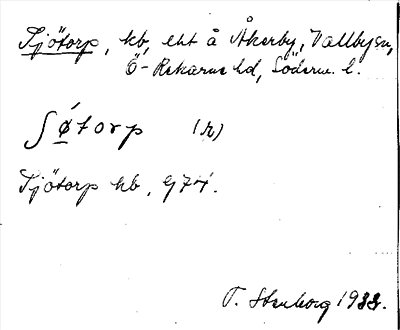 Tjötorp, hb, eht å Åkerby, Vallby sn,
Ö-Rekarne hd, Söderm. l.
ʃǿtorp (r)
Tjötorp hb, G74.
T. Stenborg 1933.